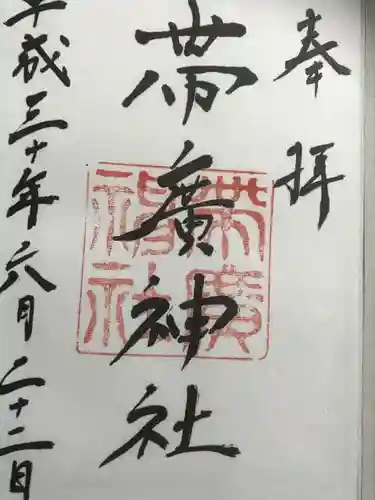 奉拝
帯廣神社
平成三十年六月二十二日
帯廣
神社